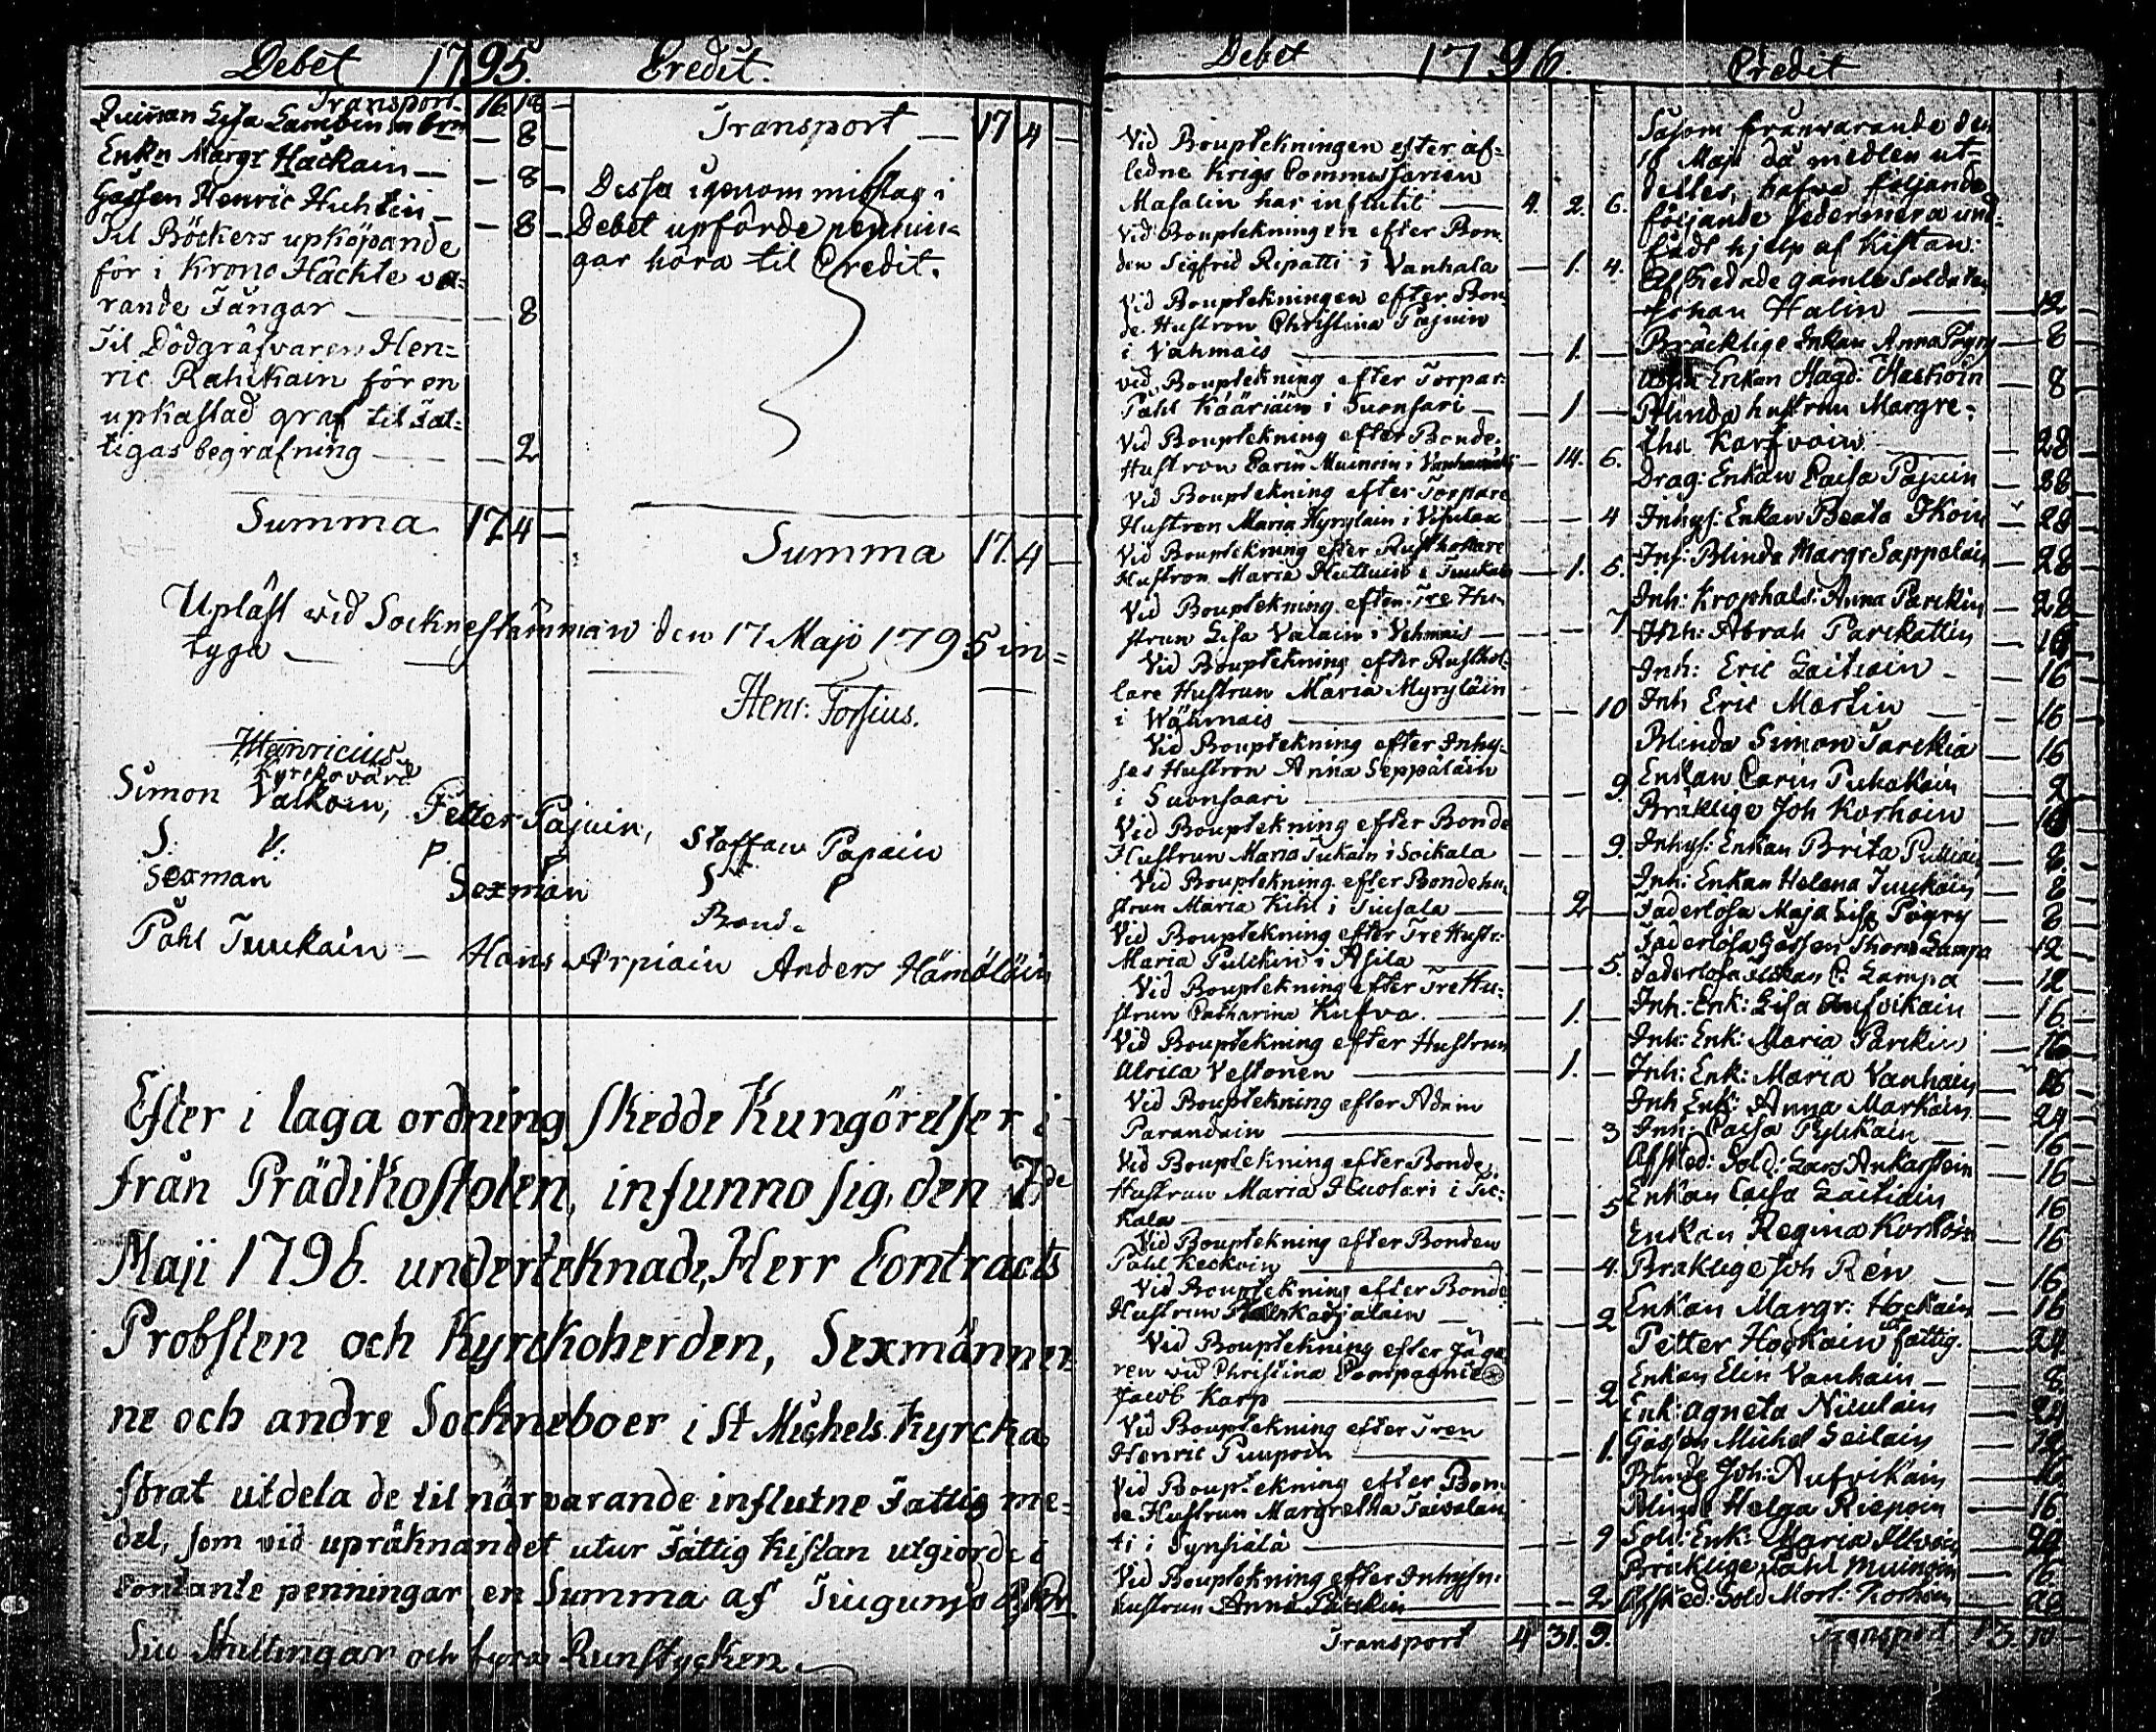 Debet 1795. Credit.
Transport 16 18 —
Quinnan Lisa
— 8 —
Enkn Margr Hackain — — 8 —
Gossen Henric Huhtin — — 8 —
Til Böckers upköpande
för i Krono Häckte va=
rande Fångar — — 8
Til Dödgräfvaren Hen=
ric Rahikain för en
upkastad graf til Fat=
tigas begrafning — — 2
Summa 17 4 —
Transport — 17 4 —
Dessa igenom misstag i
Debet upförde pennin=
gar höra til Credit.
Summa 17. 4 —
Upläst vid Sockne stämman den 17 Maji 1795 in=
tyga —
Henr: Forsius.
Kyrckovärd
Simon Valkoin, Petter Pajuin, Staffan Papain
S. V. P. P S P
Sexman Sexman Bond.
Påhl Tuukain — Hans Arpiain Anders Hämäläin
Efter i laga ordning skedde Kungörelser i
från Prädikostolen, infunno sig, den 7de
Maji 1796. underteknade, Herr Contracts
Probsten och Kyrckoherden, Sexmänner
ne och andre Sockneboer i St Michels Kyrcka
förat utdela de til närvarande influtne Fattig me=
del, som vid upräknandet utur Fattig Kistan utgiorde i
Contante penningar en Summa af Tiugusju R:dr
Siu Skillingar och fyra Runstycken.
Debet 1796. Credit
Vid Bouptekningen efter af=
ledne Krigs Commissarien
Masalin har influtit — 4. 2. 6.
Vid Bouptekningen efter Bon=
den Sigfrid Ripatti i Vanhala — 1. 4.
Vid Bouptekningen efter Bon
de Hustron Christina Pajuin
i Vahmais — — 1. —
Vid Bouptekning efter Torpar:
Påhl Kääriäin i Suonsari — — 1. —
Vid Bouptekning efter Bonde
Hustron Carin Muinoin i — 14. 6.
Vid Bouptekning efter Torpare
Hustron Maria Hyrylain i Visulax — — 4
Vid Bouptekning efter Rusthollare
Hustron Maria Huttuin i Tuukala — 1. 5.
Vid Bouptekning efter Tre Hu=
strun Lisa Valain i Vehmais — — — 7
Vid Bouptekning efter Rusthol=
lare Hustrun Maria Myryläin
i Wähmais — — — 10
Vid Bouptekning efter Inhy=
ses Hustron Anna Seppäläin
i Suonsaari — — — 9.
Vid Bouptekning efter Bonde
Hustrun Maria Tukain i Soikala — — 9.
Vid Bouptekning efter Bondehu=
strun Maria Kihl i Tiusala — — 2 —
Vid Bouptekning efter Tre Hustr:
Maria Pulckin i Asila — — — 5.
Vid Bouptekning efter Tre Hu=
strun Catharina Kufva. — — 1. —
Vid Bouptekning efter Hustrun
Ulrica Vestonen — — 1. —
Vid Bouptekning efter Adam
Parandain — — — 3
Vid Bouptekning efter Bonde
Hustrun Maria Huotari i Tic=
kala — — — 5
Vid Bouptekning efter Bonden
Påhl Keckoin — — — 4.
Vid Bouptekning efter Bonde
Hustrun — — — 2
Vid Bouptekning efter Jäga
ren vid Christina Compagnie
Jacob Karp — — — 2
Vid Bouptekning efter Tren
Henric Puupoin — — — 1.
Vid Bouptekning efter Bon=
de Hustrun Margretha Taivalan
ti i Synsiälä — — — 9
Vid Bouptekning efter Inhyses
Hustrun Anna Parckin — — — 2
Transport 4 31. 9.
Såsom frånvarande den
18 Maji då medlen ut=
deltes, hafva följande
följande sedermera und=
fådt hjelp af Kistan:
Afskedade gamle Soldaten
Johan Halin — 12
Bräcklige Enkan Anna Pögry — 8 —
Enkan Magd: Haskoin — 8
Blinda hustrun Margre=
tha Karfvoin — 28
Drag: Enkan Caisa Pajuin — 28
Inhys: Enkan Beata Ikoin — 28
Inh: Blinda Margr Sappalain — 28
Inh: Krophald: Anna Parckin — 28
Inh: Abrah Parckattin — 16
Inh: Eric Laitiain — 16
Inh Eric Martin — 16
Blinda Simon Tarckia — 16
Enkan Carin Puhakain — 2
Bräklige Joh Korhoin — 16
Inhys: Enkan Brita Pulliain — 8.
Inh: Enkan Helena Tuukain — 8
Faderlösa Maja Lisa Pögry — 8
Faderlösa Gossen Thom Lampa — 12
Faderlösa C. Lampa — 12
Inh: Enk: Lisa Aufvikain — 16
Inh: Enk: Maria Parckin — 16
Inh: Enk: Maria Vanhain — 16
Inh Enk: Anna Markain — 24
Inh: Caisa Pylckain — 16
Afsked: Sold: Lars Ankarstein — 16
Enkan Caisa Laitiain — 16
Enkan Regina Korhoin — 16
Bräklige Joh Rén — 16
Enkan Margr: Hockain — 16
Petter Hockain utfattig. — 24
Enkan Elin Vanhain — 8.
Enk: Agneta Niculain — 24
Gossen Michel Leilain — 12
Blinde Joh: Aufvikain — 16
Blinde Helga Riepoin — 16.
Sold: Enk: Maria — 24
Bräcklige Påhl Muinoin — 16.
Afsked: Sold Mort: Korhoin — 20
Transport 13. 10